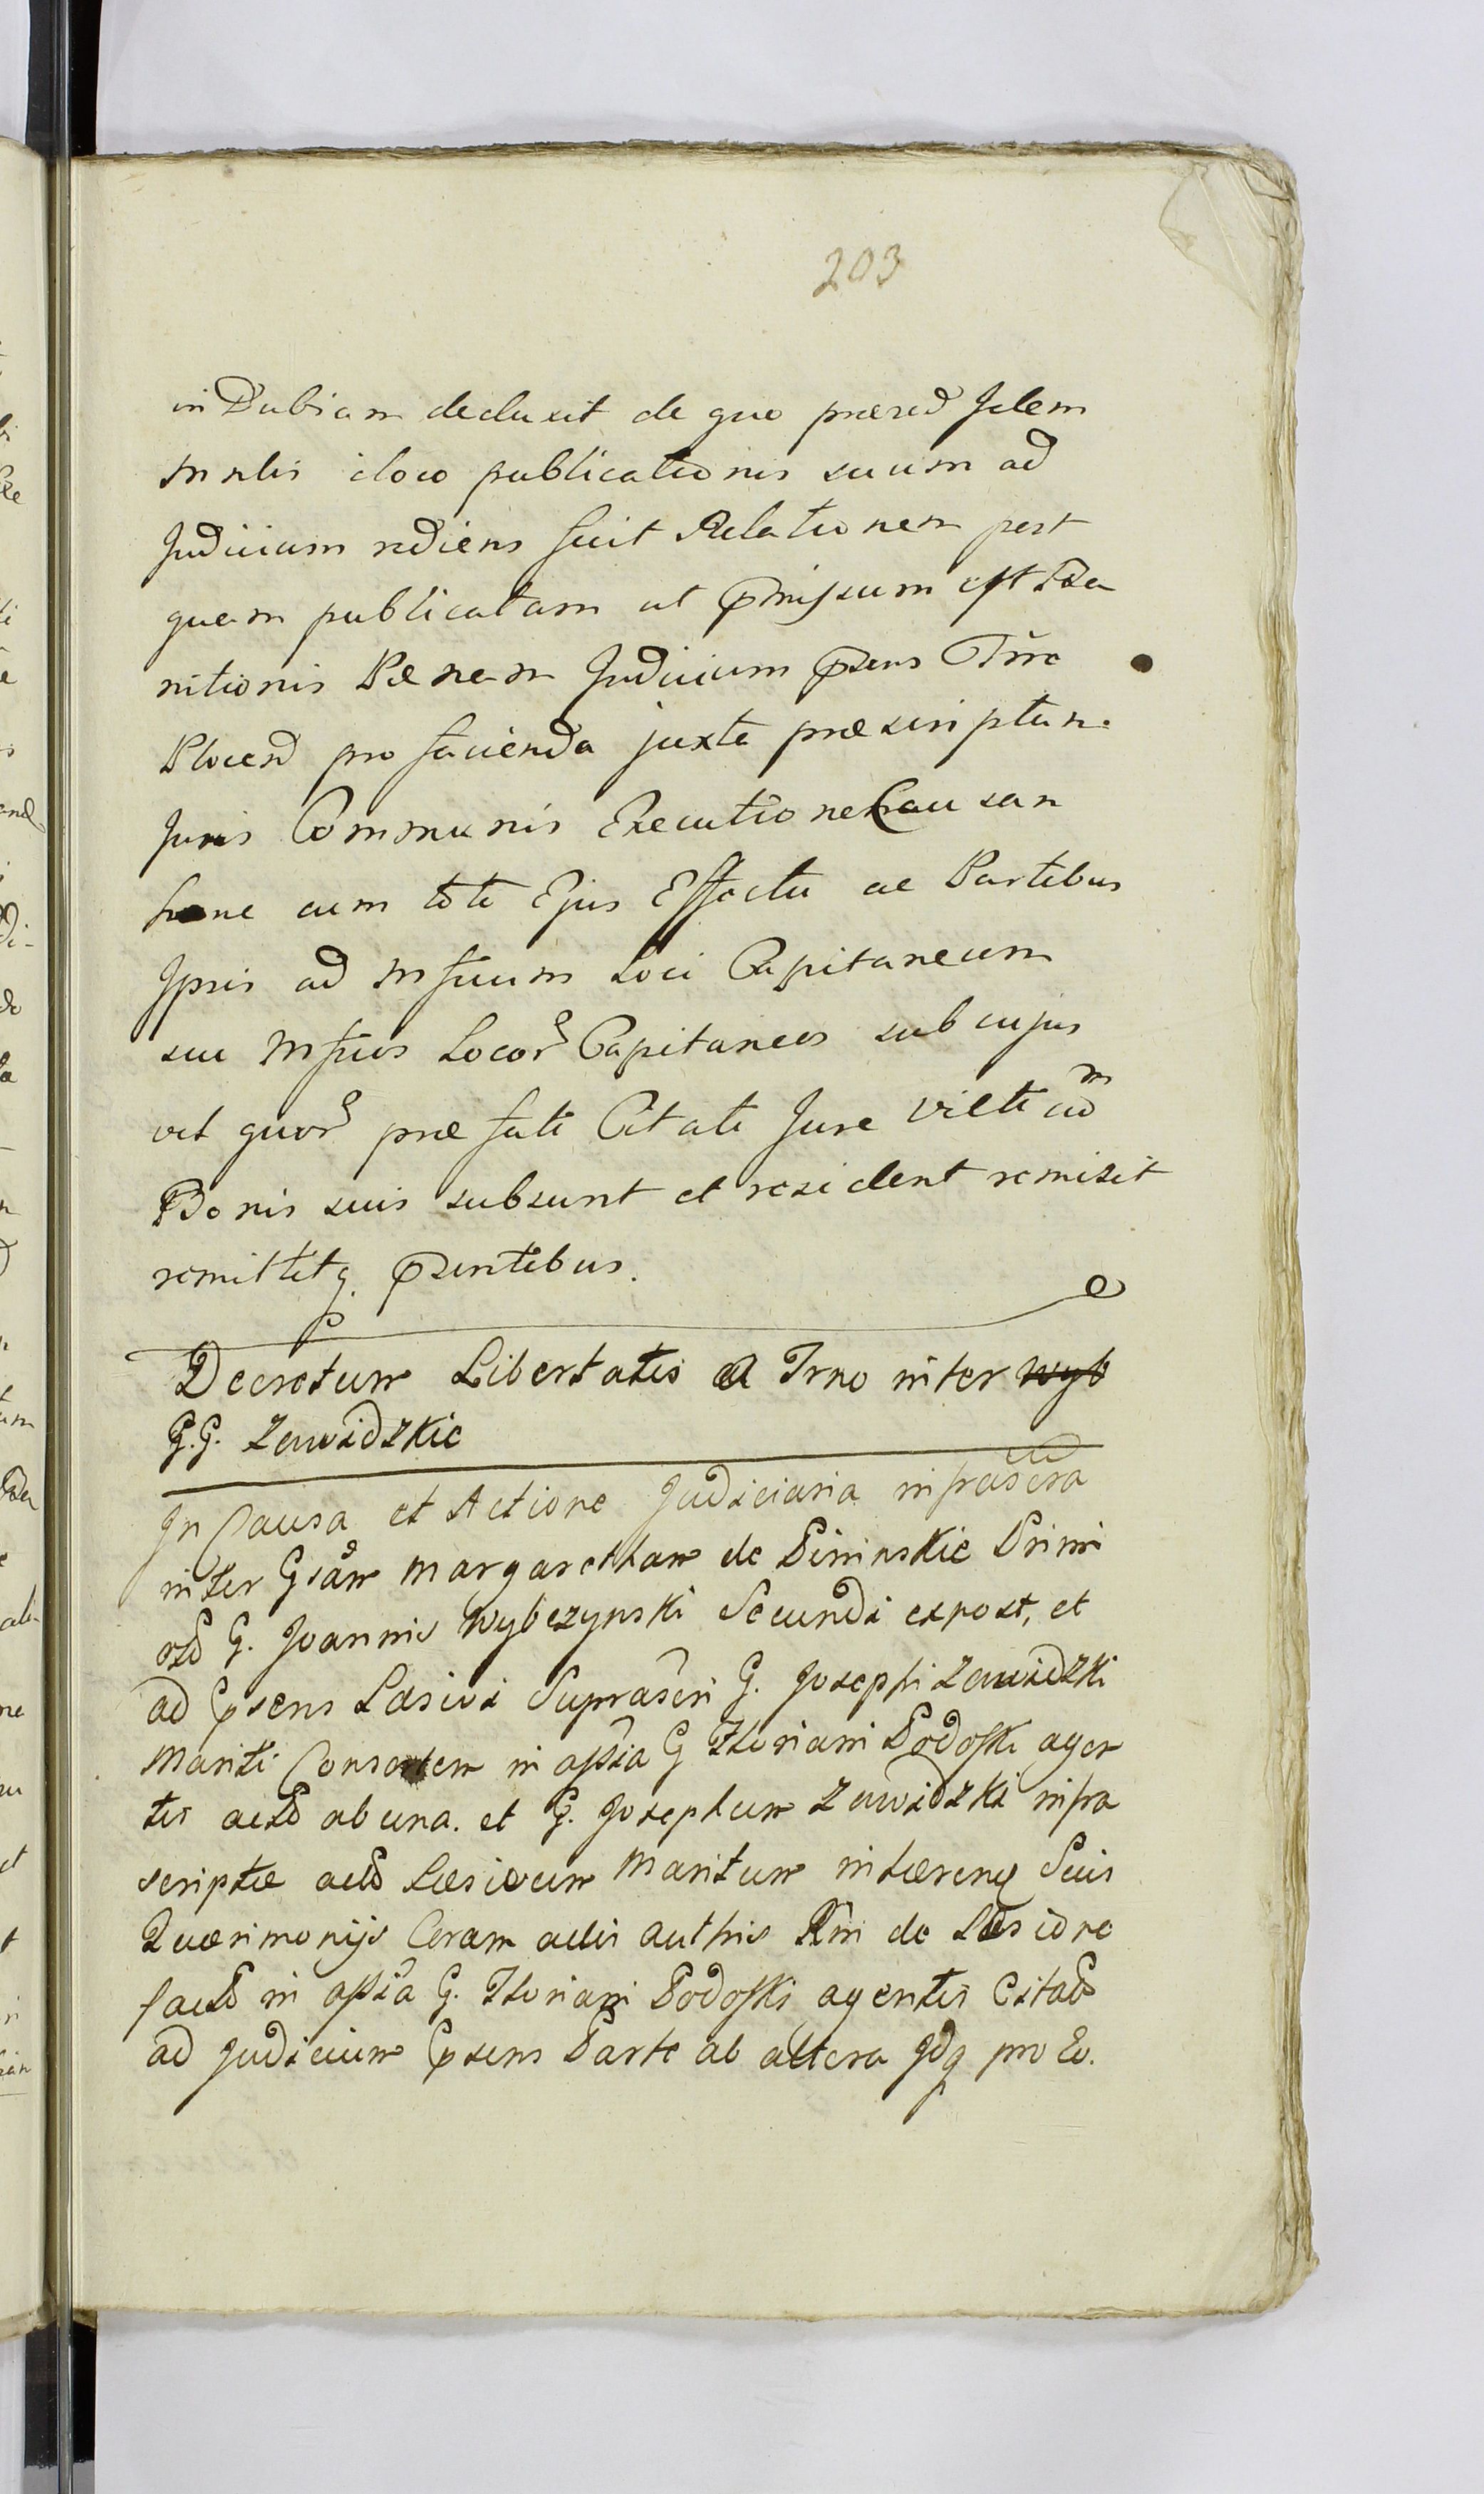 203
in Dubiam deduxit de quo præred Idem
Mnlis eloco publicationis suum ad
Judicium rediens fecit Relationem post
quam publicatam ut pmissum est Ba
nitionis Pænam Judicium psens Trre
Plocend pro facienda juxta præscriptum
Juris Communis Executione Causam
hanc cum toto Ejus Effectu ac Partibus
Ipsis ad Mficum Loci Capitaneum
seu Mficos Locor Capitaneos sub cujus
vel quor præfati Citati Jure victi cum
Bonis suis subsunt et resident remisit
remittitq psentibus.
Decretum Libertatis a Trno inter Wyb
G.G. Zawidzkie
In Causa et Actione Judiciaria infrascra
inter Gsam Margaretham de Pininskie Primi
G. Joannis Wybczynski Secundi expost, et
ad psens Læsivi Suprascri G. Josephi Zawidzki
Mariti Consortem in assia G Floriani Podoski agen
tis actd ab una. et G. Josephum Zawidzki infra
scriptæ actd Læsivum Maritum inhæreng Suis
Quærimonijs Coram actis authis Rni de Læsione
factd in assia G. Floriani Podoski agentis Citatd
ad Judicium psens Parte ab altera Idq pro Eo.